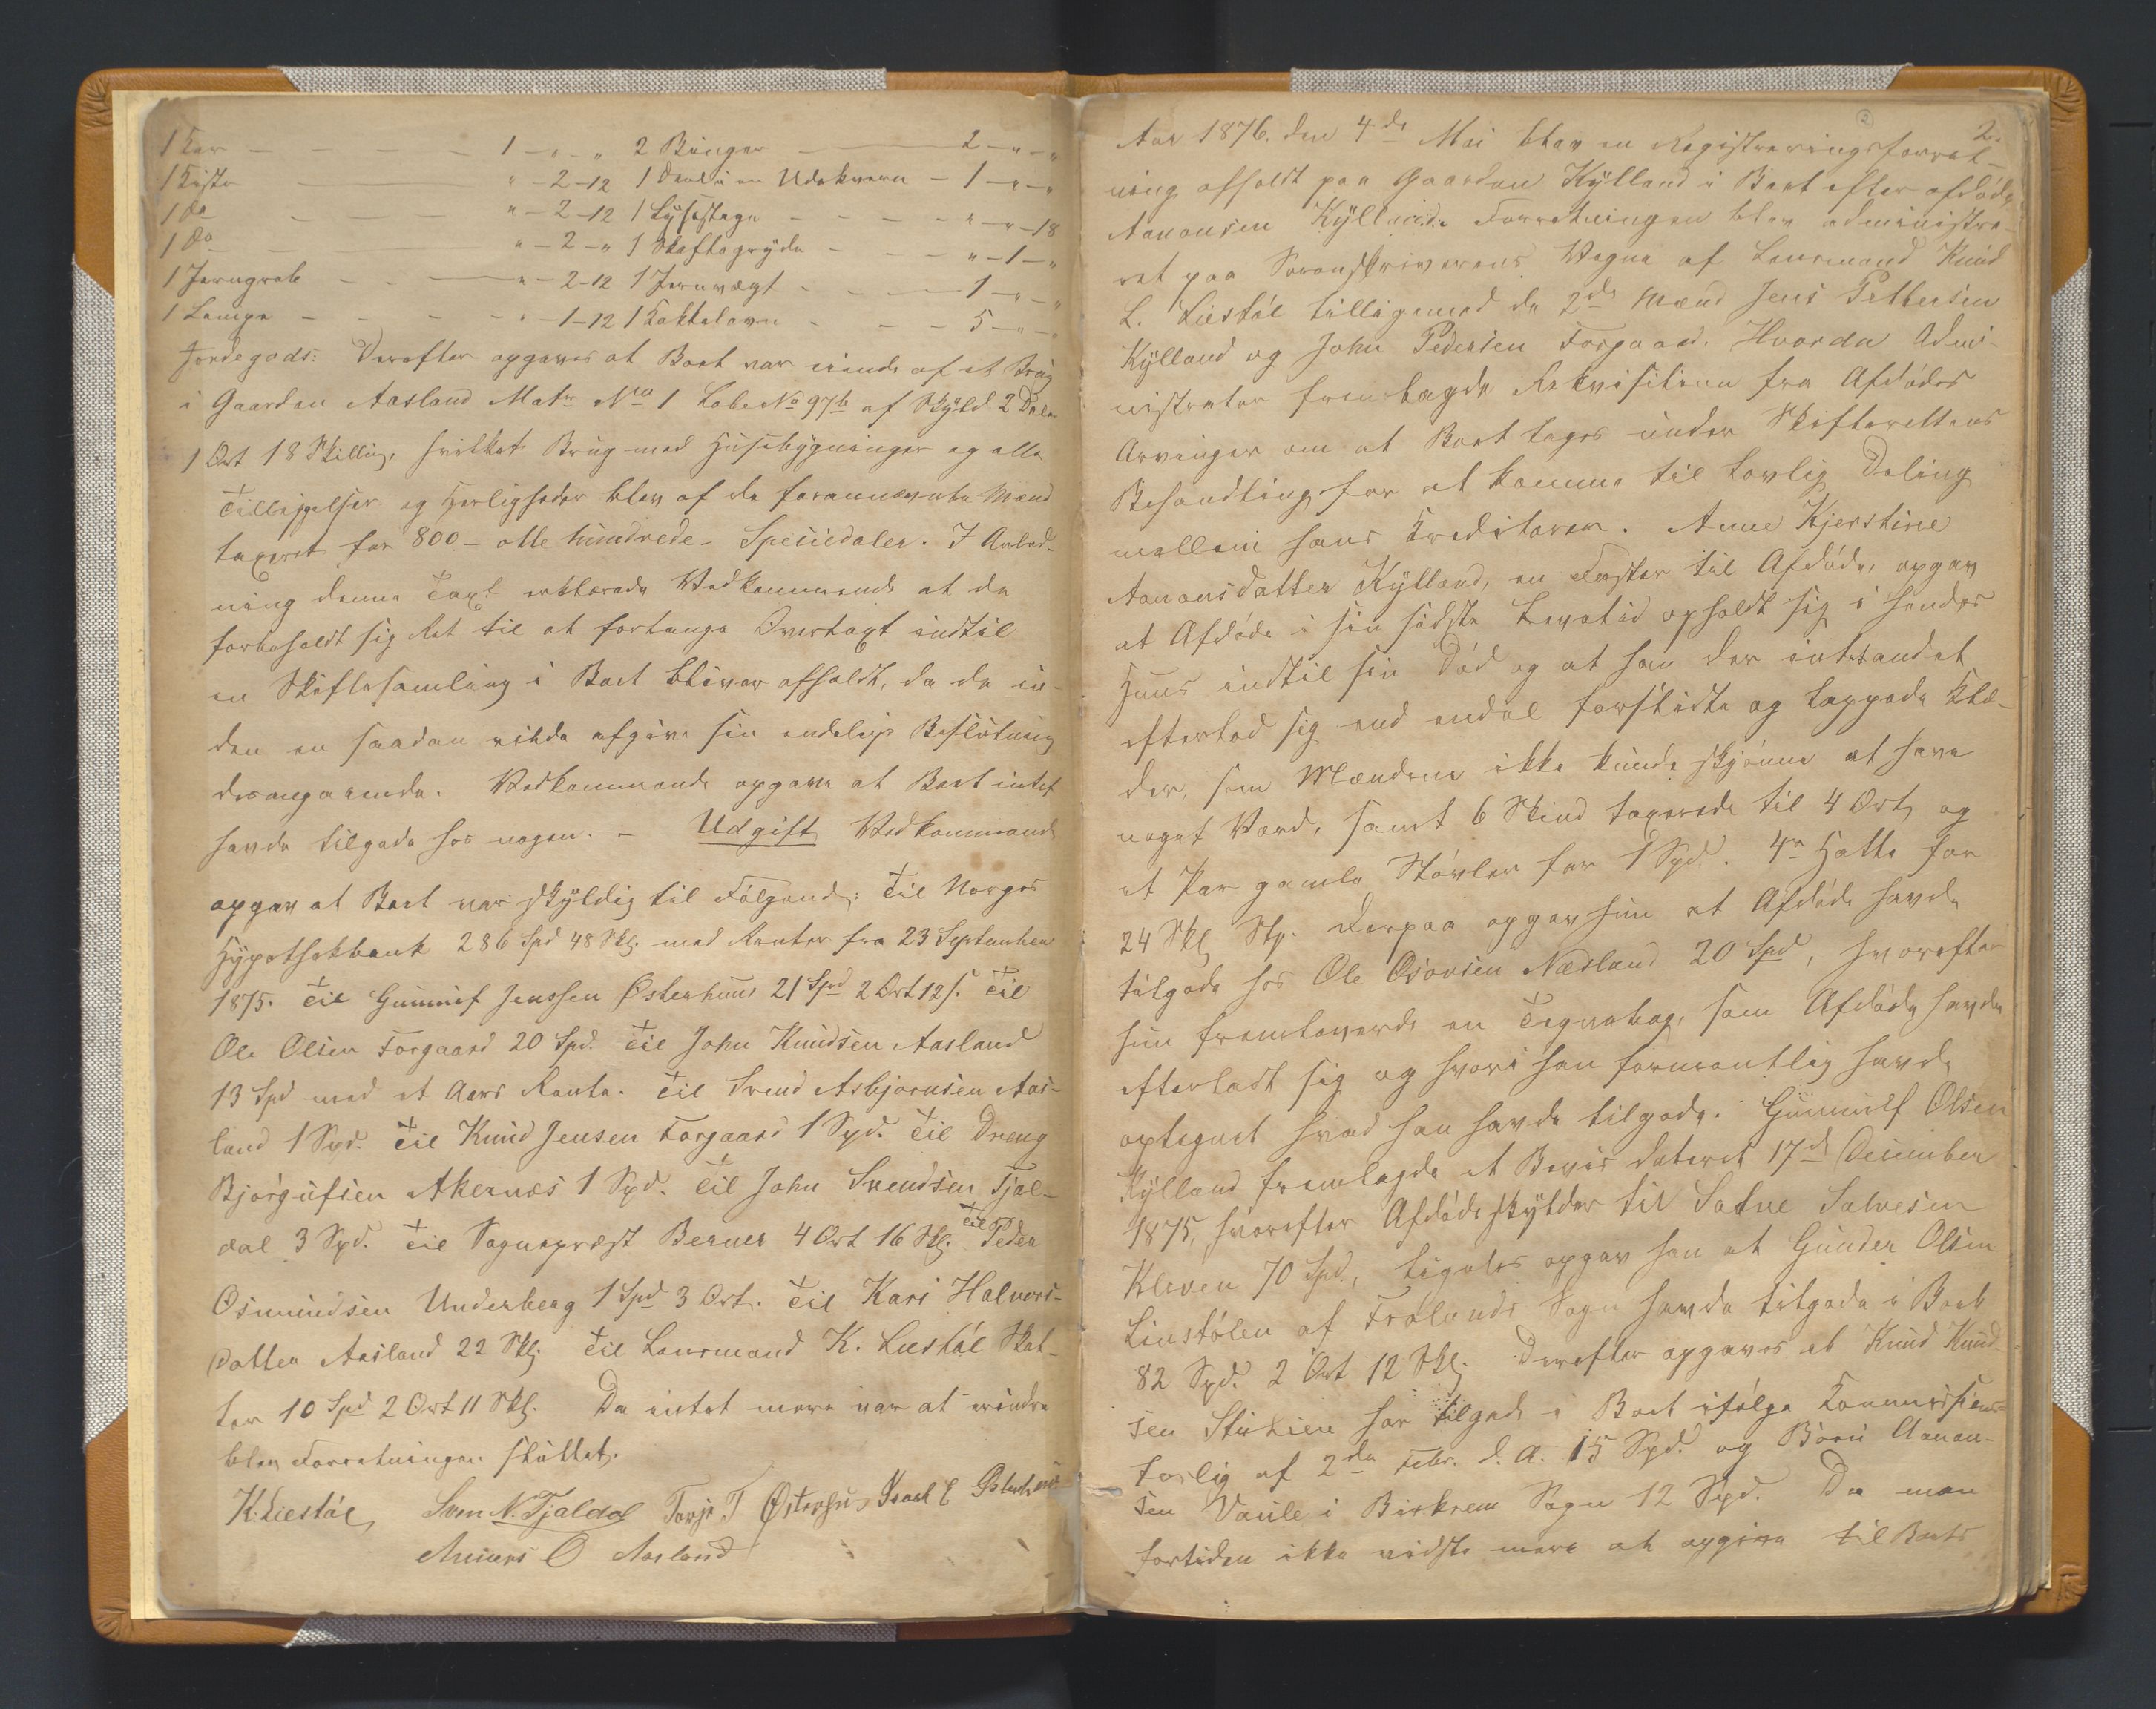 1 Kar — — — — — 1 - " - " 2 Binger — — 2 - " - "
1 Kiste — — — " - 2 - 12 1 Deel i en Udekvern - 1 - " - "
1 do — — — " - 2 - 12 1 Lysestage — — — " - " - 18
1 do — — — " - 2 - " 1 Skaftegryde — — — " - 1 - "
1 Jerngrab — — — " - 2 - 12 1 Jernvægt — — — 1 - " - "
1 Lampe — — — " - 1 - 12 1 Kakkelovn — — — 5 - " - "
Jordegods: Derefter opgaves at Boet var eiende af et Brug
i Gaarden Aasland Matr No 1 Løbe No 97b af Skyld 2 Daler
1 Ort 18 Skilling, hvilket Brug med Husebygninger og alle
Tilleggelser og Herligheder blev af de forannævnte Mænd
taxeret for 800 - otte hundrede - Speciedaler. I Anled-
ning denne Taxt erklærede Vedkommende at de
forbeholdt sig Ret til at forlange Overtaxt indtil
en Skiftesamling i Boet bliver afholdt, da de in-
den en saadan vilde afgive sin endelige Beslutning
desangaaende. Vedkommende opgave at Boet intet
havde tilgode hos nogen. - Udgift Vedkommende
opgav at Boet var skyldig til Følgende: Til Norges
Hypothekbank 286 Spd 48 Skl. med Renter fra 23 September
1875. Til Gunnuf Jenssen Østerhuus 21 Spd 2 Ort 12 s. Til
Ole Olsen Forgaard 20 Spd. Til John Knudsen Aasland
13 Spd med et Aars Rente. Til Svend Asbjørnsen Aas-
land 1 Spd. Til Knud Jensen Forgaard 1 Spd. Til Dreng
Bjorgufsen Akernæs 1 Spd. Til John Svendsen Tjal-
dal 3 Spd. Til Sogneprest Berner 4 Ort 16 Skl. Til Peder
Osmundsen Underberg 1 Spd 3 Ort. Til Kari Halvors-
datter Aasland 22 Skl. Til Lensmand K. Liestøl Skat-
ter 10 Spd 2 Ort 11 Skl. Da intet mere var at erindre
blev Forretningen sluttet.
K. Liestøl Sven N. Tjaldal Torje T Østerhus
O Aasland
2
Aar 1876. den 4de Mai blev en Registreringsforret-
ning afholdt paa Gaarden Kylland i Boet efter afdøde
Aanonsen Kylland. Forretningen blev administre-
ret paa Sorenskriverens Vegne af Lensmand Knud
L. Liestøl tilligemed de 2de Mænd Jens Pettersen
Kylland og John Pedersen Forgaard. Hvorda Admi-
nistrator fremlagde Rekvisitionen fra Afdødes
Arvinger om at Boet toges under Skifterettens
Behandling for at komme til lovlig Deling
mellem hans Kreditorer. Anne Kjerstine
Aanonsdatter Kylland, en Faster til Afdøde, opgav
at Afdøde i sin sidste Levetid opholdt sig i hendes
Huus indtil sin Død og at han der intet andet
efterlod sig end endel forslidte og lappede Klæ-
der, som Mændene ikke kunde skjønne at have
noget Værd, samt 6 Skind taxerede til 4 Ort og
et Par gamle Støvler for 1 Spd. 4r Hatte for
24 Skl Stp. Derpaa opgav hun at Afdøde havde
tilgode hos Ole Osovsen Næsland 20 Spd, hvorefter
hun fremleverede en Tegnebog, som Afdøde havde
efterladt sig og hvori han formentlig havde
optegnet hvad han havde tilgode. Gunnulf Olsen
Kylland fremlagde et Bevis dateret 17de December
1875, hvorefter Afdøde skylder til Salve Salvesen
Kleven 70 Spd., ligeledes opgav han at Gunder Olsen
Linstølen af Frolands Sogn havde tilgode i Boet
82 Spd. 2 Ort 12 Skl. Derefter opgaves at Knud Knud-
sen Stuhien har tilgode i Boet ifølge Kommissions-
forlig af 2de Febr. d. A. 15 Spd. og Børn Aanon-
sen Vaule i Birkrem Sogn 12 Spd. Da man
fortiden ikke vidste mere at opgive til Boets